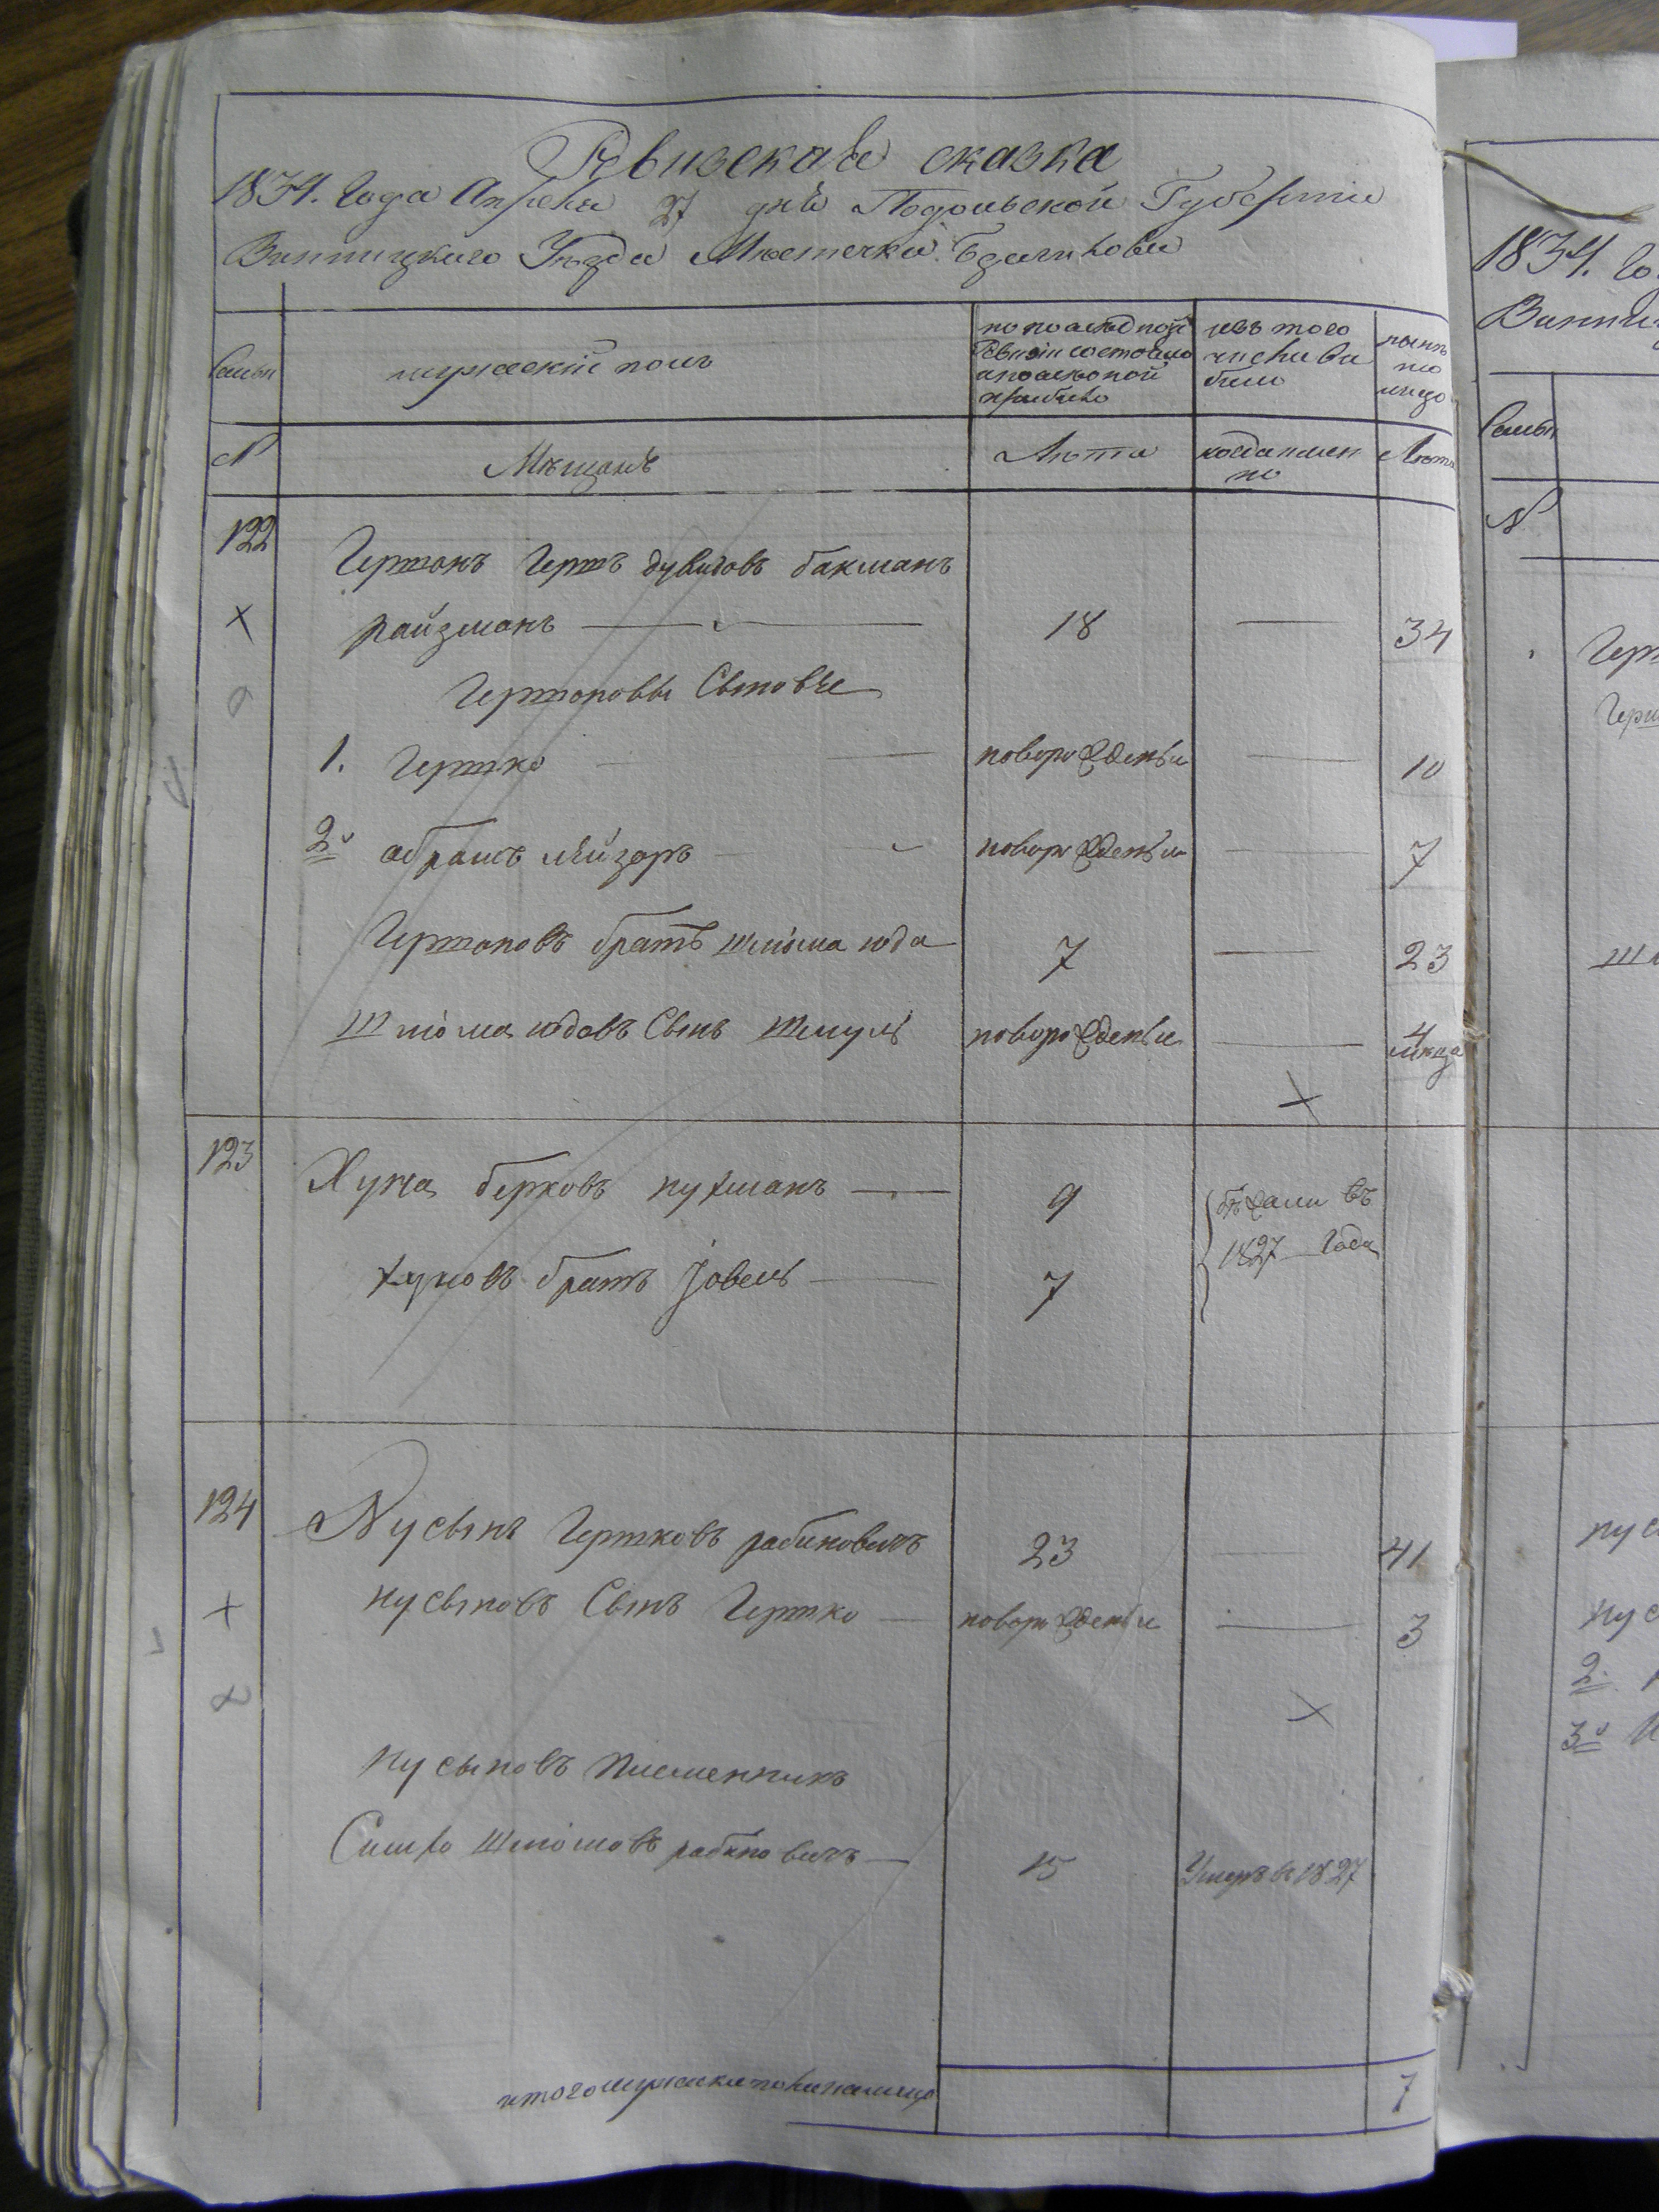 Ревизская сказка
1834. Года Апреля 27 дня Подольской Губерніи
Винницкого Уезда Местечка
Семьи
мужескій полъ
по последной Ревизіи состояло и после оной прибыло
изъ того числа выбыло
ныне на лицо
№
Мещанъ
Лета
когда имен
но
Лета
122
Гершонъ Гершъ дувидовъ бакманъ
райзманъ
18
34
Гершоновы Сыновъя
1. Гершко
новорожденъи
10
2й абрамъ лейзоръ
новорожденъи
7
Гершоновъ братъ шлиома юда
7
23
Шлиома юдовъ Сынъ шмуль
новорожденъи
4 месяца
123
Хуна берковъ нухманъ
9
бежали въ
1827 Года
хуновъ братъ іовель
7
124
Нусынъ Гершковъ рабиновичъ
23
41
нусыновъ Сынъ Гершко
новорожденъи
3
нусыновъ племенникъ
Симха Шлиомовъ рабиновичъ
15
Умеръ въ 1827
итого мужеска пола на лицо
7
1834. Го
Винни
Семьи
№
Гер
Гер
ш
нус
нус
2.
3й